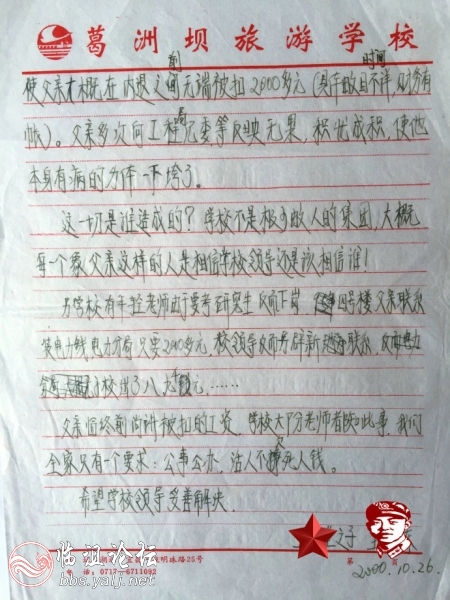 葛洲坝旅游学校
前 时间
使父亲大概在内退之间无端被扣2000多元(具体数目不祥,财务有
帐)。父亲多次向工程纪委等反映无果,积忧成积,使他
本身有病的身体一下垮了。
这一切是谁造成的?学校不是极少数人的集团,大概
每一个象父亲这样的人是相信学校领导还是该相信谁!
另学校有年轻老师由于要考研究生反而下岗 四号楼父亲联系
装电力线电力分局只要2000多元,校领导反而另辟新 联系,反而
学校出了八九千元,……
父亲临终前尚讲被扣的工资,学校大部分老师都知此事,我们
全家只有一个要求:公事公办,活人不 死人钱。
希望学校领导妥善解决
2000.10.26.
明珠路25号
电 话:0717-6711692
第 页
临沮论坛
bbs.yalj.net